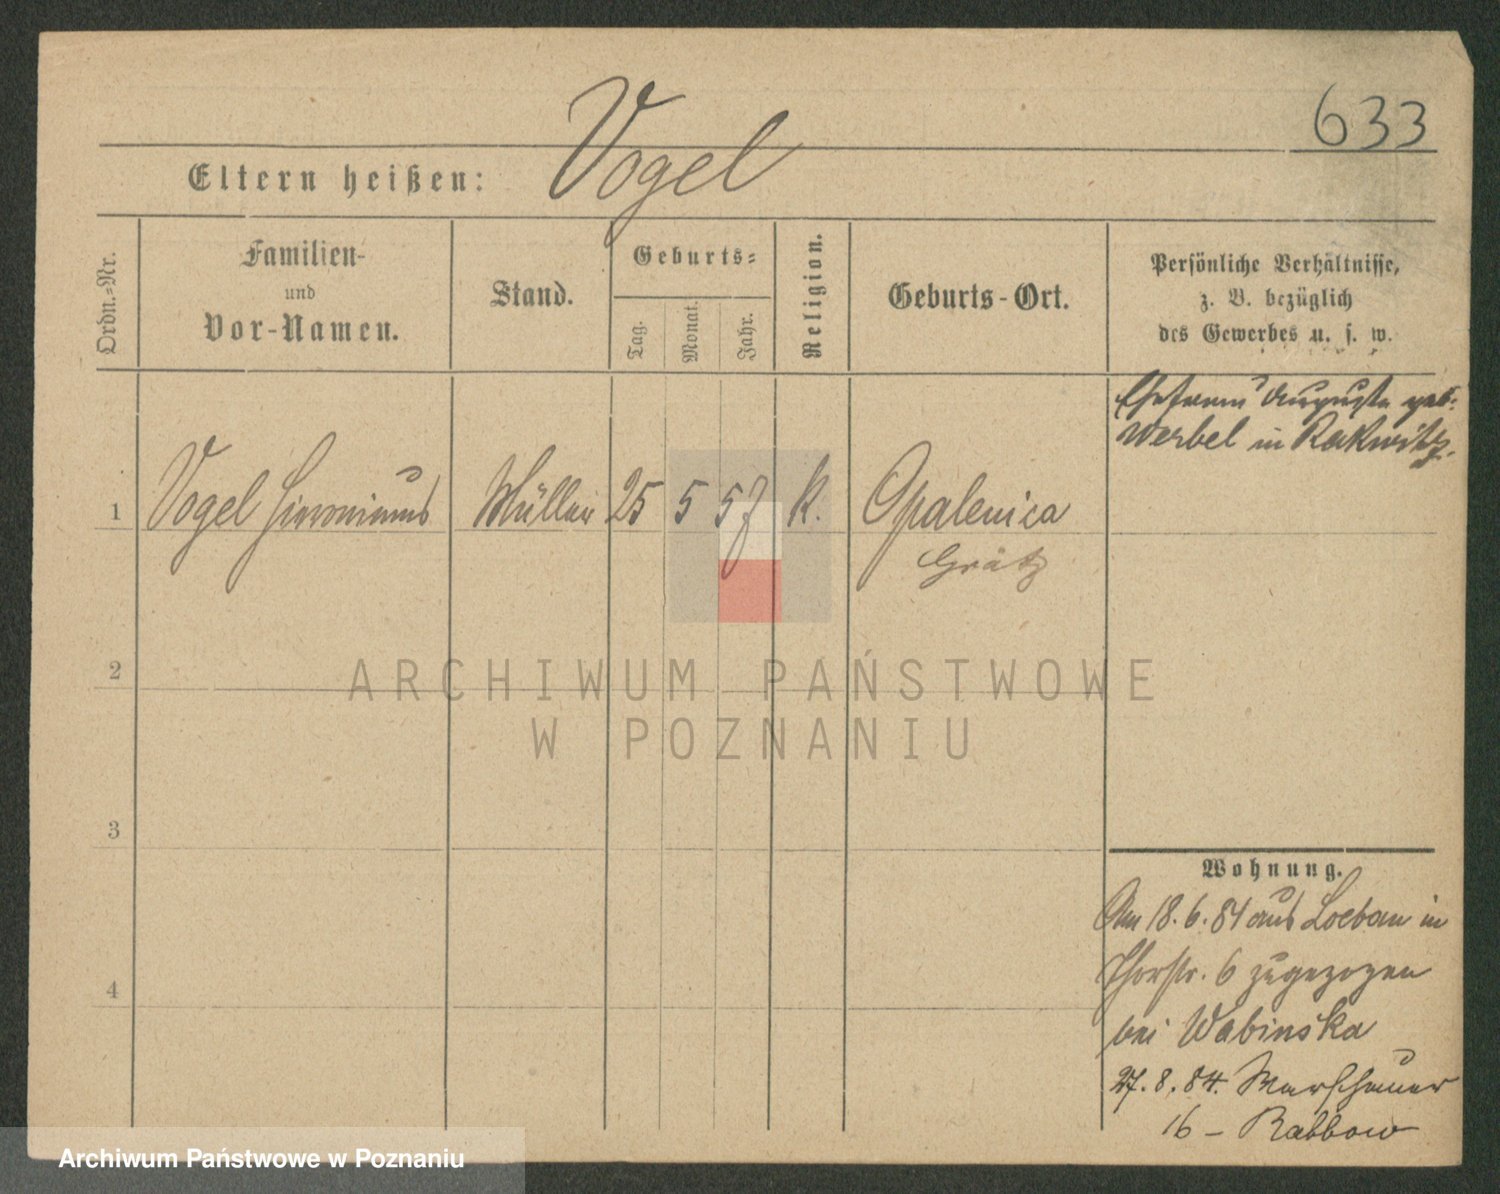 633
Eltern heißen: Vogel
Ordn.-Nr.
Familien-
und
Vor-Namen.
Stand.
Geburts-
Tag.
Monat.
Jahr.
Religion.
Geburts-Ort.
Persönliche Verhältnisse,
z. B. bezüglich
des Gewerbes u. s. w.
Ehefrau Auguste geb.
Werbel in Rakwitz.
1 Vogel Hieronimus Müller 25 5 57 K. Opalenica
Grätz
ARCHIWUM PAŃSTWOWE
W POZNANIU
2
3
4
Wohnung.
Am 18.6.84 aus Loebau in
Thorstr. 6 zugezogen
bei Wabinska
27.8.84. Warschauer
16 - Rabbow
Archiwum Państwowe w Poznaniu